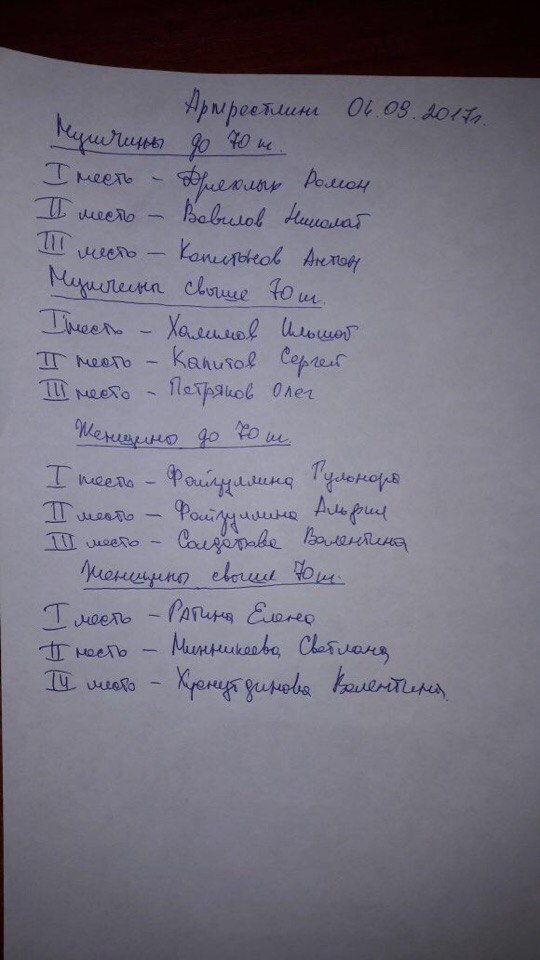 Армрестлинг 04.09.2017г.
Мужчины до 70 кг.
I место – Роман
II место – Вавилов Николай
III место – Капитонов Антон
Мужчины свыше 70 кг.
I место – Халимов Ильшат
II место – Капитов Сергей
III место – Петряков Олег
Женщины до 70 кг.
I место – Файзуллина Гульнара
II место – Файзуллина Альфия
III место – Солдатова Валентина
Женщины свыше 70 кг.
I место – Рагина Елена
II место – Минникеева Светлана
место – Валентина